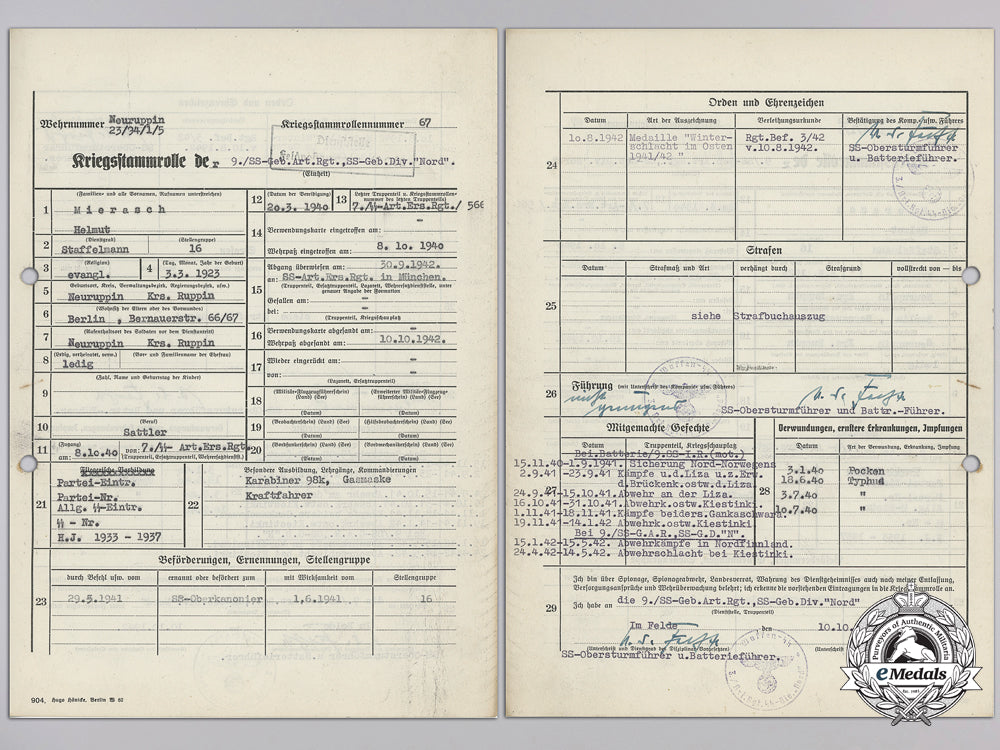 Wehrnummer Neuruppin
23/94/1/5
Kriegsstammrollennummer 67
Kriegsstammrolle der 9./SS-Geb.Art.Rgt.,SS-Geb.Div."Nord".
(Einheit)
1 (Familien- und alle Vornamen, Rufnamen unterstreichen)
Mierasch
Helmut
2 (Dienstgrad) Staffelmann (Stellengruppe) 16
3 (Religion) evangl. 4 (Tag, Monat, Jahr der Geburt) 3.3. 1923
5 Geburtsort, Kreis, Verwaltungsbezirk, Regierungsbezirk, usw.)
Neuruppin Krs. Ruppin
6 (Wohnsitz der Eltern oder des Vormundes)
Berlin , Bernauerstr. 66/67
7 (Aufenthaltsort des Soldaten vor dem Diensteintritt)
Neuruppin Krs. Ruppin
8 (Ledig, verheiratet, verw.) (Vor- und Familienname der Ehefrau)
ledig
9 (Zahl, Name und Geburtstag der Kinder)
10 (Beruf)
Sattler
11 (Zugang) am: 8.10.40 von: 7./SS-Art.Ers.Rgt.
(Truppenteil, Ersatztruppenteil, Wehrersatzdienstst.)
12 (Datum der Vereidigung) 20.3. 1940
13 Letzter Truppenteil u. Kriegsstammrollennummer des letzten Truppenteils)
7./SS-Art.Ers.Rgt./ 566
14 Verwendungskarte eingetroffen am: -
Wehrpaß eingetroffen am: 8. 10. 1940
15 Abgang überwiesen am: 30.9.1942.
an: SS-Art.Ers.Rgt. in München.
(Truppenteil, Ersatztruppenteil, Lazarett, Wehrersatzdienststelle, unter genauer Angabe der Formation
Gefallen am: -
bei: -
(Truppenteil, Kriegsschauplatz)
16 Verwendungskarte abgesandt am: -
Wehrpaß abgesandt am: 10.10.1942.
17 Wieder eingerückt am: -
von: -
(Lazarett, Ersatztruppenteil)
18 (Militär-Flugzeugführerschein) (Land) (See) (Erweiterter Militär-Flugzeugf.) (Land) (See)
(Datum) (Datum)
19 (Beobachterschein) (Land) (See) (Hilfsbeobachterschein) (Land) (See)
(Datum) (Datum)
20 (Bordfunkerschein) (Land) (See) (Bordwartschein) (Land) (See)
(Datum) (Datum)
21 Fliegerische Vorbildung
Partei-Eintr.
Partei-Nr.
Allg. SS-Eintr.
SS - Nr.
H.J. 1933 - 1937
22 Besondere Ausbildung, Lehrgänge, Kommandierungen
Karabiner 98k, Gasmaske
Kraftfahrer
Beförderungen, Ernennungen, Stellengruppe
durch Befehl usw. vom ernannt oder befördert zum mit Wirksamkeit vom Stellengruppe
23 29.5.1941 SS-Oberkanonier 1.6.1941 16
904. Hugo Hönicke, Berlin W 62
Orden und Ehrenzeichen
Datum Art der Auszeichnung Verleihungsurkunde Bestätigung des Komp.-usw. Führers
24 10.8.1942 Medaille "Winter- Rgt.Bef. 3/42
schlacht im Osten v.10.8.1942. SS-Obersturmführer
1941/42 " u. Batterieführer.
Strafen
Datum Strafmaß und Art verhängt durch Strafgrund vollstreckt von — bis
25 siehe Strafbuchauszug
26 Führung (mit Unterschrift des Kompanie usw. Führers)
SS-Obersturmführer und Battr.-Führer.
Mitgemachte Gefechte
Datum Truppenteil, Kriegsschauplatz
27 Bei.Batterie/9.SS-I.R.(mot.)
15.11.40-1.9.1941. Sicherung Nord-Norwegens
2.9.41 -23.9.41 Kämpfe u.d.Liza u.z.Erw.
d.Brückenk.ostw.d.Liza.
24.9.41-15.10.41.Abwehr an der Liza.
16.10.41-31.10.41.Abwehrk.ostw.Kiestinki
1.11.41-18.11.41.Kämpfe beiders.Gankaschwara.
19.11.41-14.1.42 Abwehrk.ostw.Kiestinki.
Bei 9./SS-G.A.R.,SS-G.D."N".
15.1.42-15.5.42. Abwehrkämpfe in Nordfinnland.
24.4.42-14.5.42. Abwehrschlacht bei Kiestinki.
Verwundungen, ernstere Erkrankungen, Impfungen
Datum Art der Verw., Erkrankung, Impfung
28 3.1.40 Pocken
18.6.40 Typhus
3.7.40 "
10.7.40 "
29 Ich bin über Spionage, Spionageabwehr, Landesverrat, Wahrung des Dienstgeheimnisses auch nach meiner Entlassung,
Versorgungsansprüche und Wehrüberwachung belehrt; ich erkenne die vorstehenden Eintragungen in die Kriegsstammrolle an.
Ich habe an die 9./SS-Geb.Art.Rgt.,SS-Geb.Div."Nord"
(Truppenteil, Dienststelle)
Im Felde den 10.10.
(Unterschrift und Dienstgrad des Disziplinarvorgesetzten) (Unterschrift
SS-Obersturmführer u.Batterieführer.
Purveyors of Authentic Militaria
eMedals